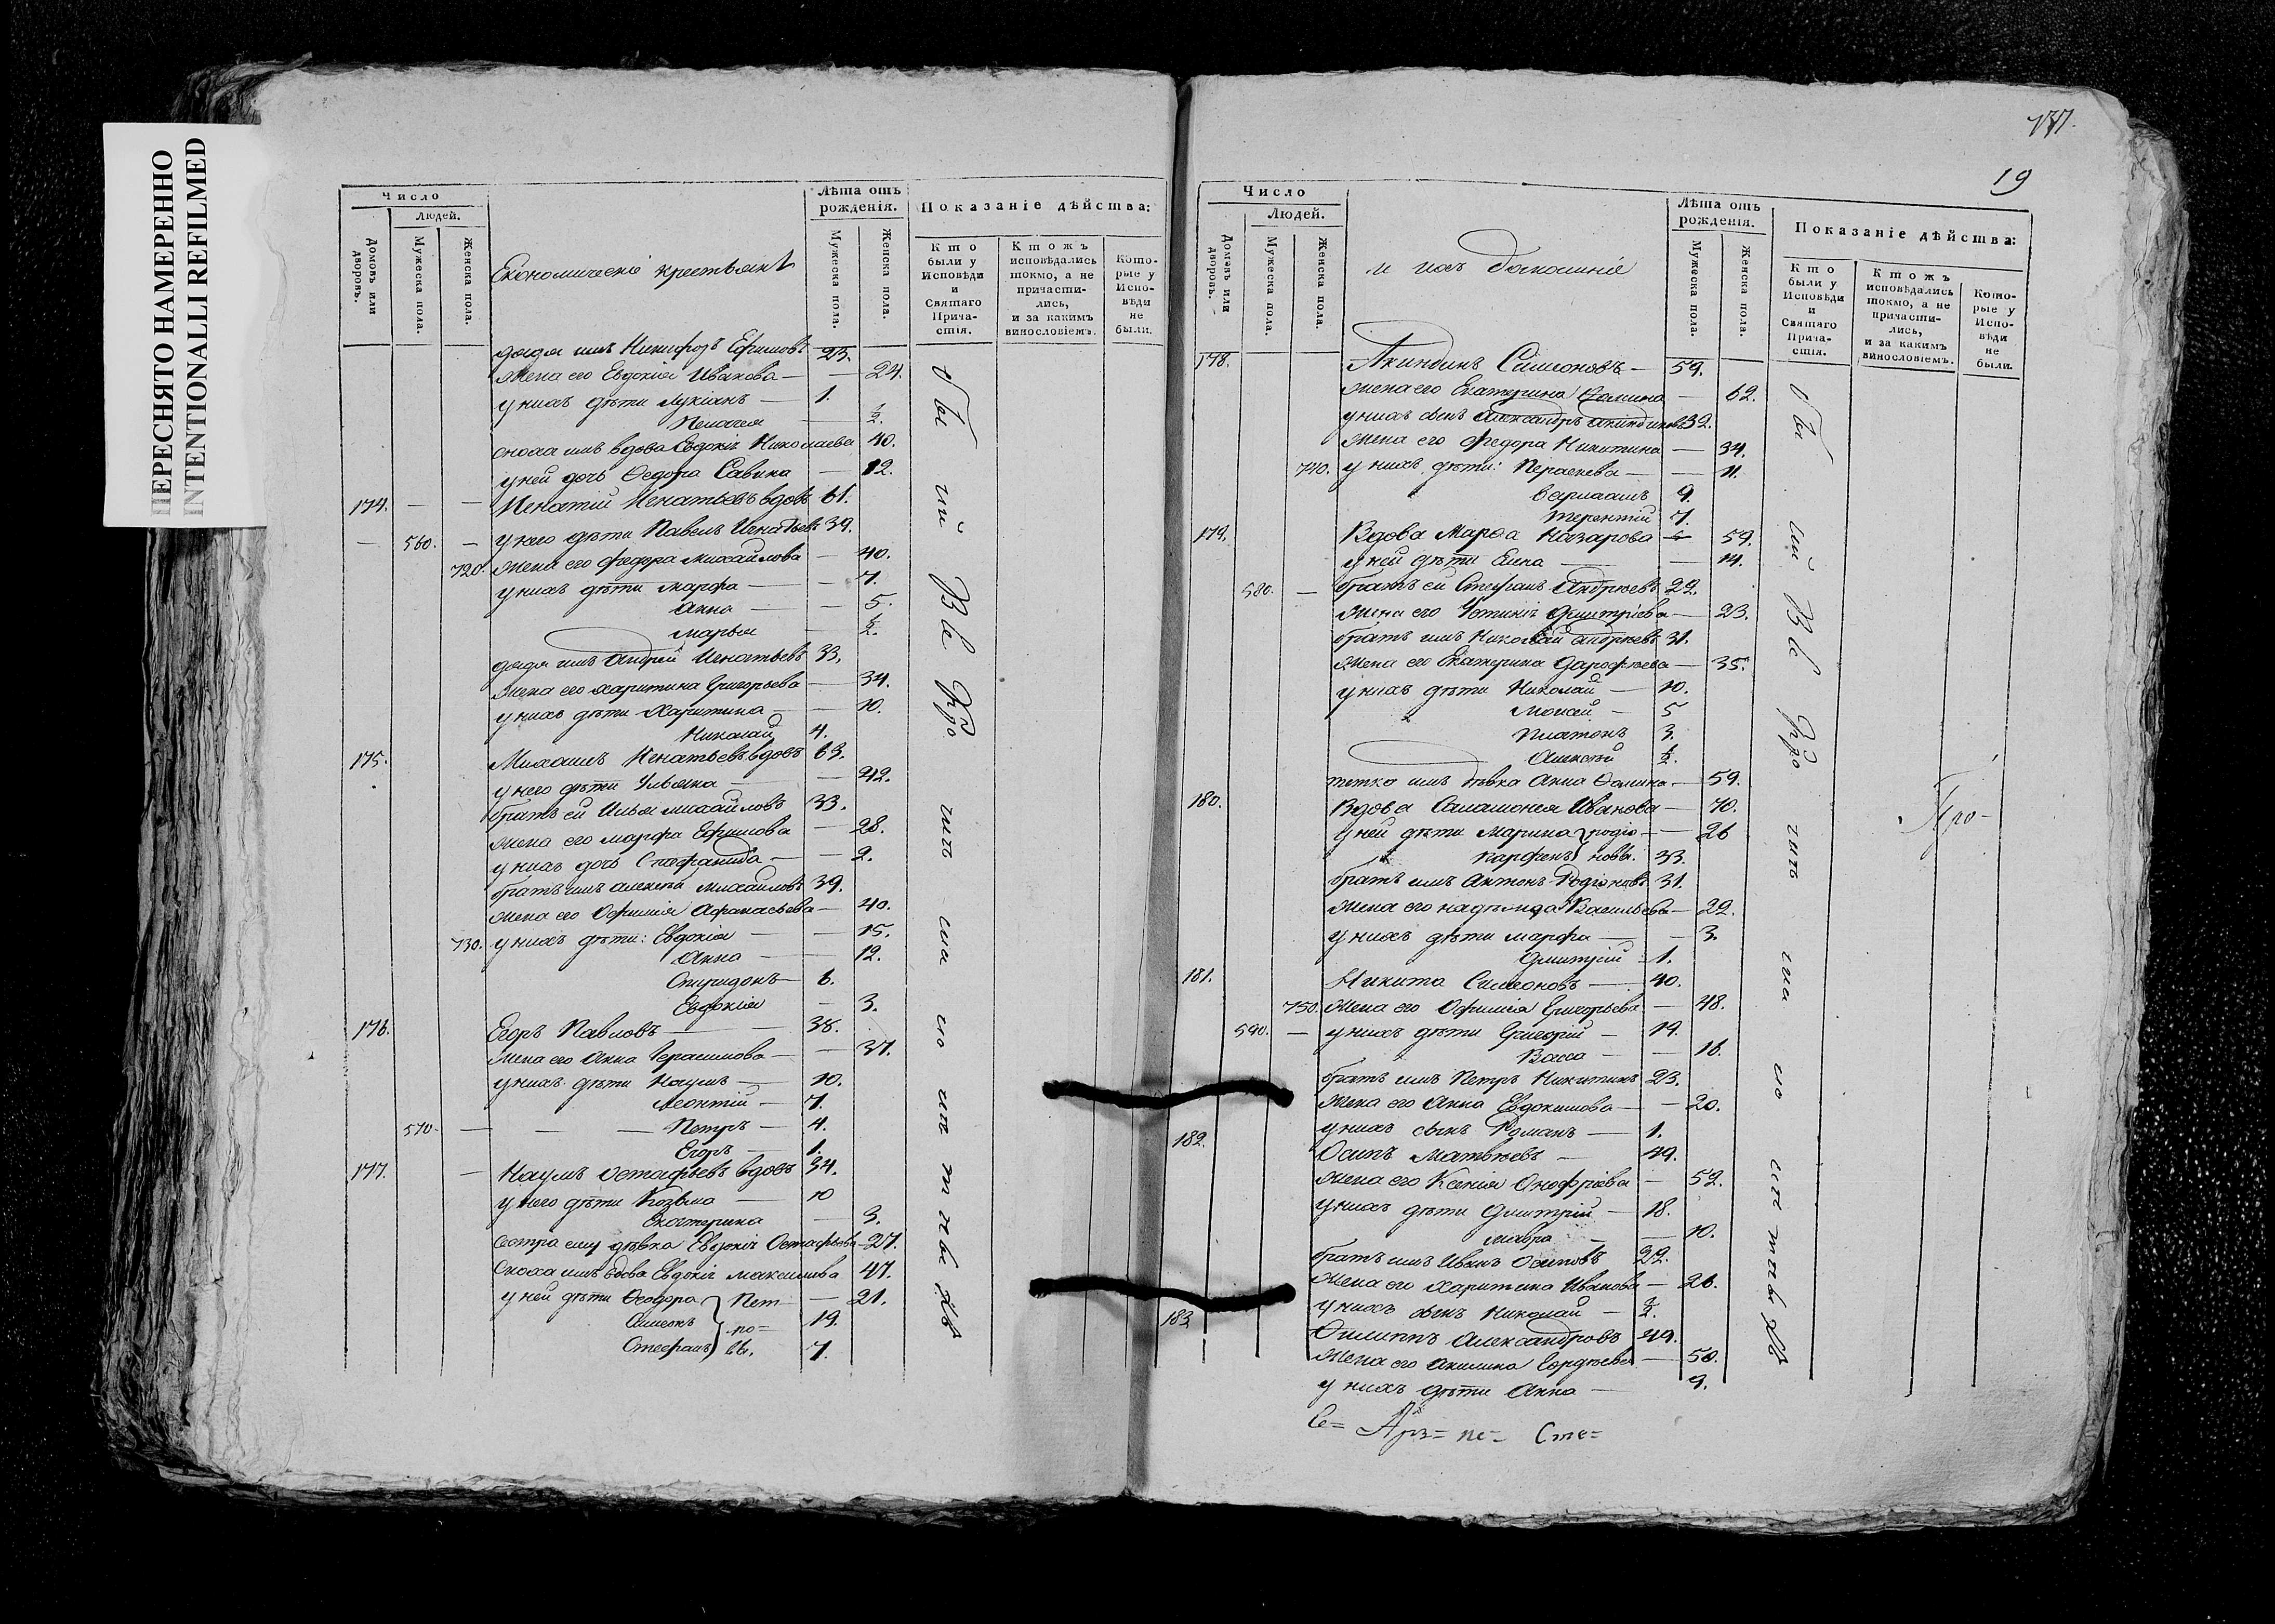 ПЕРЕСНЯТО НАМЕРЕННО
INTENTIONALLI REFILMED
Число
Людей.
Домовъ или дворовъ.
Мужеска пола.
Женска пола.
Економическіе крестьяне
Лѣта отъ рожденія.
Мужеска пола.
Женска пола.
Показаніе дѣйства:
Кто были у Исповѣди и Святаго Причастія.
Ктожъ исповѣдались токмо, а не причастились, и за какимъ винословіемъ.
Которые у Исповѣди не были.
дядя имъ Никифоръ Ефимовъ 23.
Жена его Евдокия Иванова — — 24.
у нихъ дѣти Лукіанъ — 1.
Пелагея — ½.
сноха имъ вдова Евдокія Николаева 40.
у ней дочь Ѳедора Савина — 12.
174. — — Игнатій Игнатьевъ вдовъ 61.
— 560. — у него дѣти Павелъ Игнатьевъ 39.
720. Жена его Федора Михайлова — 40.
у нихъ дѣти Марфа — — 7.
Анна — — 5.
Марья — ½.
дядя имъ Андрей Игнатьевъ 33.
Жена его Харитина Григорьева — 34.
у нихъ дѣти Харитина — — 10.
Николай 4.
175. Михаилъ Игнатьевъ вдовъ 63.
у него дѣти Ульяна — — 42.
братъ ей Илья Михайловъ 33.
Жена его Марфа Ефимова — 28.
у нихъ дочь Стефанида — — 2.
братъ имъ Алексѣй Михайловъ 39.
Жена его Офимія Афанасьева — 40.
730. у нихъ дѣти: Евдокія — — 15.
Анна — — 12.
Спиридонъ — 6.
Евдокія — 3.
176. Егоръ Павловъ — — 38.
Жена его Анна Герасимова — — 37.
у нихъ дѣти Наумъ — 10.
Леонтій — 7.
570. — — — Петръ — 4.
Егоръ — 1.
177. — Наумъ Остафьевъ вдовъ 34.
у него дѣти Козьма — 10
Екатерина — 3.
Сестра ему дѣвка Евдокія Остафьева — 27.
Сноха имъ вдова Евдокія Максимова 47.
у ней дѣти Ѳеодора Пет — 21.
Симеонъ ро= 19.
Стефанъ вы. 7.
Бы ли Ве ро
177.
19
Число
Людей.
Домовъ или дворовъ.
Мужеска пола.
Женска пола.
и ихъ домашніе
Лѣта отъ рожденія.
Мужеска пола.
Женска пола.
Показаніе дѣйства:
Кто были у Исповѣди и Святаго Причастія.
Ктожъ исповѣдались токмо, а не причастились, и за какимъ винословіемъ.
Которые у Исповѣди не были.
178. Акиндинъ Симеоновъ — 59.
Жена его Екатерина Фомина — 62.
у нихъ сынъ Александръ Акиндиновъ 32.
Жена его Федора Никитина — 34.
740. у нихъ дѣти: Парасковья — — 11.
Варлаамъ 9.
Терентій 7.
179. Вдова Марѳа Назарова — 59.
у ней дѣти Елена — — 14.
580. — братъ ей Стефанъ Андреевъ 22.
Жена его Устинія Дмитріева — 23.
братъ имъ Николай Андреевъ 31.
Жена его Екатерина Дорофеева — 35.
у нихъ дѣти Николай — 10.
Моисей — 5
Платонъ 3.
Алексѣй ½.
тетка имъ дѣвка Анна Фомина — 59.
180. Вдова Саломонея Иванова — 70.
у ней дѣти Марина родіо — — 26
Карфенъ новы. 33.
братъ имъ Антонъ Родіоновъ 31.
Жена его Надежда Васильева — 22.
у нихъ дѣти Марфа — — 3.
Дмитрій — 1.
181. Никита Симеоновъ — 40.
750. Жена его Офимія Григорьева — 48.
590. — у нихъ дѣти Григорій — 19.
Васса — — 16.
братъ имъ Петръ Никитинъ 23.
Жена его Анна Евдокимова — — 20.
у нихъ сынъ Романъ — 1.
182. Осипъ Матвѣевъ — 49.
Жена его Ксенія Онофріева — 52.
у нихъ дѣти Дмитрій — 18.
Мавра — — 10.
братъ имъ Иванъ Осиповъ 22.
Жена его Харитина Иванова — 26.
у нихъ сынъ Николай — ½.
183 Филиппъ Александровъ 49.
Жена его Акилина Гордѣева — 50.
у нихъ дѣти Анна — 9.
Про-
Се=